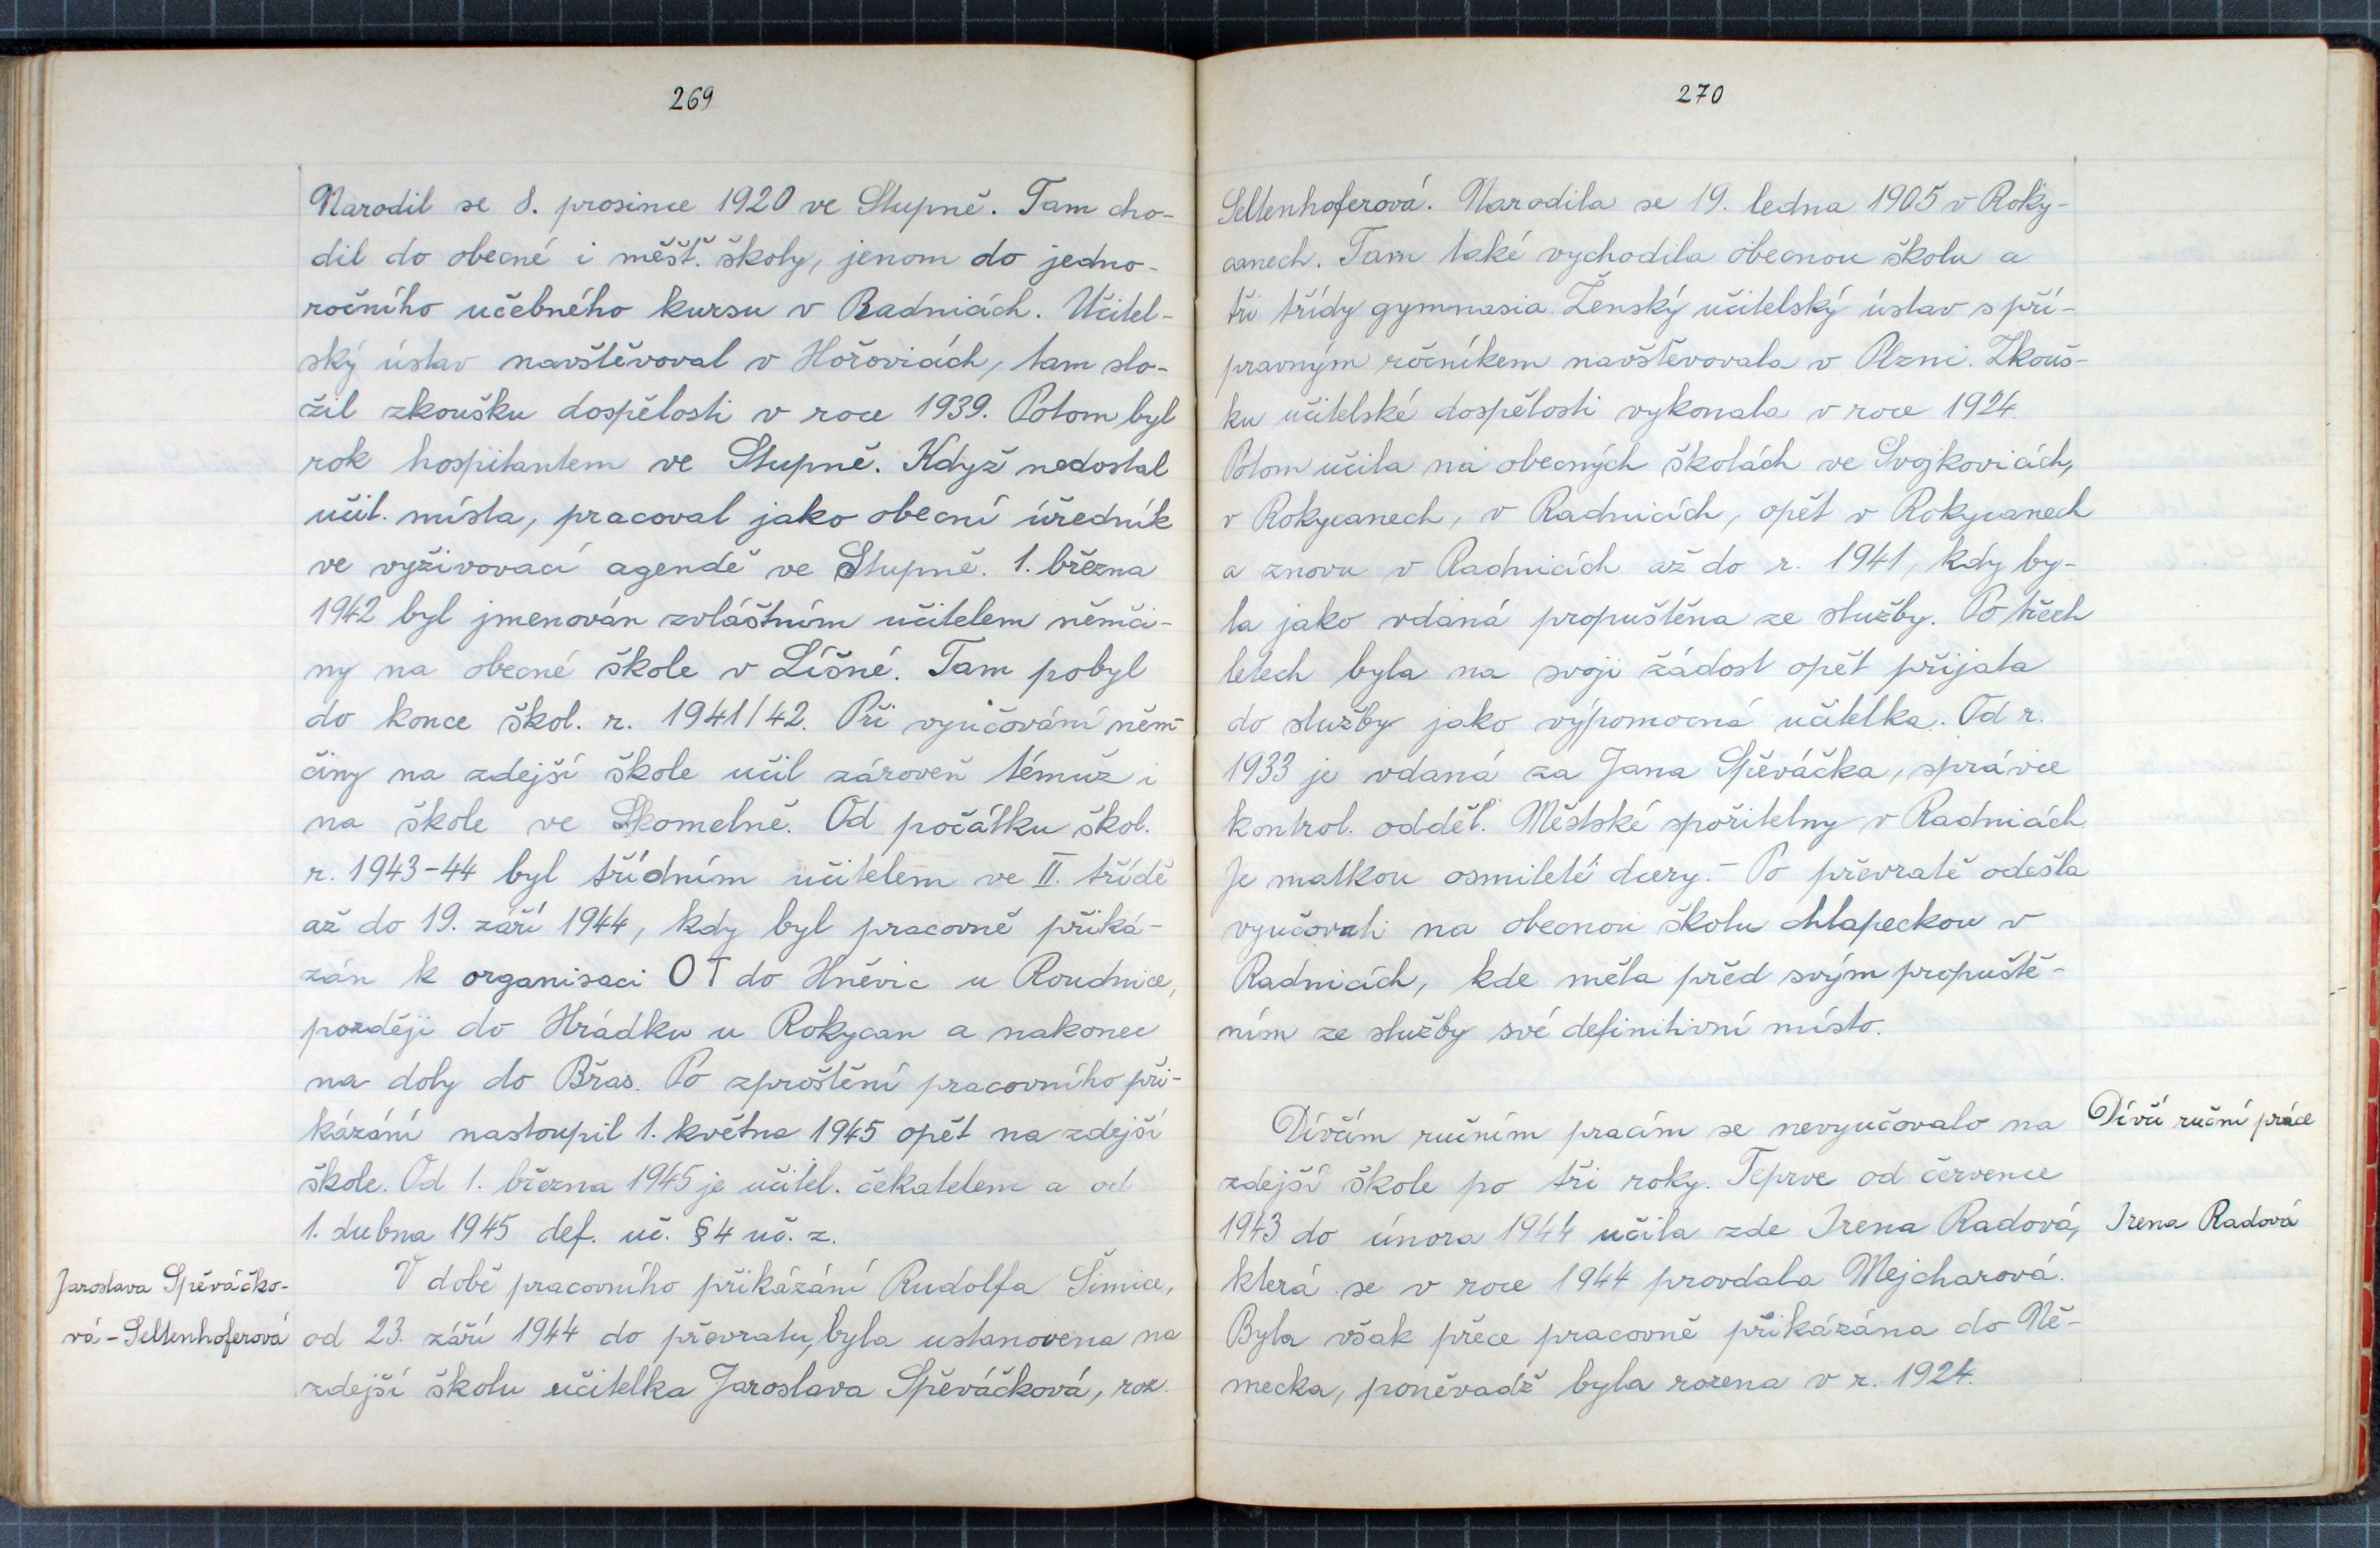 269
Narodil se 8. prosince 1920 ve Stupně. Tam cho-
dil do obecné i měšť. školy, jenom do jedno-
ročního učebného kursu v Radnicích. Učitel-
ský ústav navštěvoval v Hořovicích, tam slo-
žil zkoušku dospělosti v roce 1939. Potom byl
rok hospitantem ve Stupně. Když nedostal
učit. místa, pracoval jako obecní úředník
ve vyživovací agendě ve Stupně. 1. března
1942 byl jmenován zvláštním učitelem němči-
ny na obecné škole v Líšné. Tam pobyl
do konce škol. r. 1941/42. Při vyučování něm-
činy na zdejší škole učil zároveň témuž i
na škole ve Skomelně. Od počátku škol.
r. 1943-44 byl třídním učitelem ve II. třídě
až do 19. září 1944, kdy byl pracovně přiká-
zán k organisaci OT do Hněvic u Roudnice,
později do Hrádku u Rokycan a nakonec
na doly do Břas. Po zproštění pracovního při-
kázání nastoupil 1. května 1945 opět na zdejší
škole. Od 1. března 1945 je učitel. čekatelem a od
1. dubna 1945 def. uč. §4 uč. z.
Jaroslava Spěváčko-
vá-Seltenhoferová
V době pracovního přikázání Rudolfa Šimice,
od 23. září 1944 do převratu, byla ustanovena na
zdejší školu učitelka Jaroslava Spěváčková, roz.
270
Seltenhoferová. Narodila se 19. ledna 1905 v Roky-
canech. Tam také vychodila obecnou školu a
tři třídy gymnasia. Ženský učitelský ústav s pří-
pravným ročníkem navštěvovala v Plzni. Zkouš-
ku učitelské dospělosti vykonala v roce 1924.
Potom učila na obecných školách ve Svojkovicích,
v Rokycanech, v Radnicích, opět v Rokycanech
a znovu v Radnicích až do r. 1941, kdy by-
la jako vdaná propuštěna ze služby. Po třech
letech byla na svoji žádost opět přijata
do služby jako výpomocná učitelka. Od r.
1933 je vdaná za Jana Spěváčka, správce
kontrol. odděl. Městské spořitelny v Radnicích.
Je matkou osmileté dcery. - Po převratě odešla
vyučovati na obecnou školu chlapeckou v
Radnicích, kde měla před svým propuště-
ním ze služby své definitivní místo.
Dívčím ručním pracím se nevyučovalo na
Dívčí ruční práce
zdejší škole po tři roky. Teprve od července
1943 do února 1944 učila zde Irena Radová,
Irena Radová
která se v roce 1944 provdala Mejcharová.
Byla však přece pracovně přikázána do Ně-
mecka, poněvadž byla rozena v r. 1924.